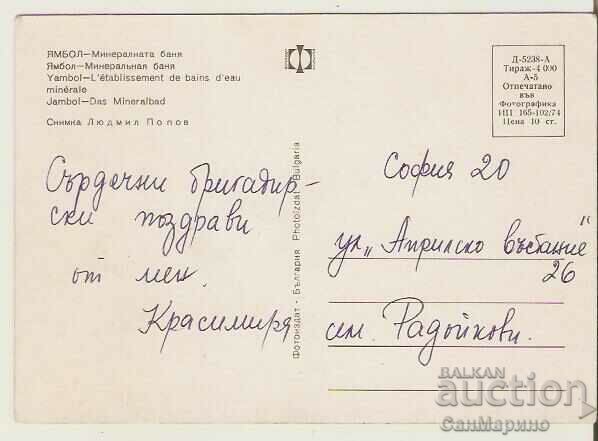 ЯМБОЛ—Минералната баня
Ямбол—Минеральная баня
Yambol—L'établissement de bains d'eau
minérale
Jambol—Das Mineralbad
Снимка Людмил Попов
Сърдечни бригадир-
ски поздрави
от мен.
Красимира
Фотоиздат - България Photoizdat - Bulgaria
Д-5238-А
Тираж-4 000
А-5
Отпечатано
във
Фотографика
ИП 165-102/74
Цена 10 ст.
София 20
ул „Априлско въстание“
26
сем. Радойкови.
BALKAN
auction
СанМарино